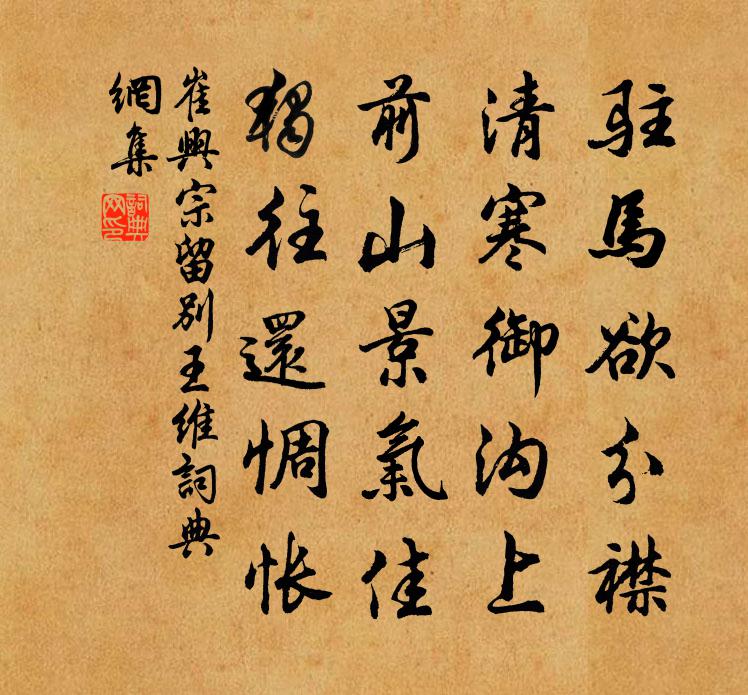 駐馬欲分襟
清寒御沟上
前山景氣佳
獨往還惆悵
崔興宗留別王維詞典
網集
詞典
网印